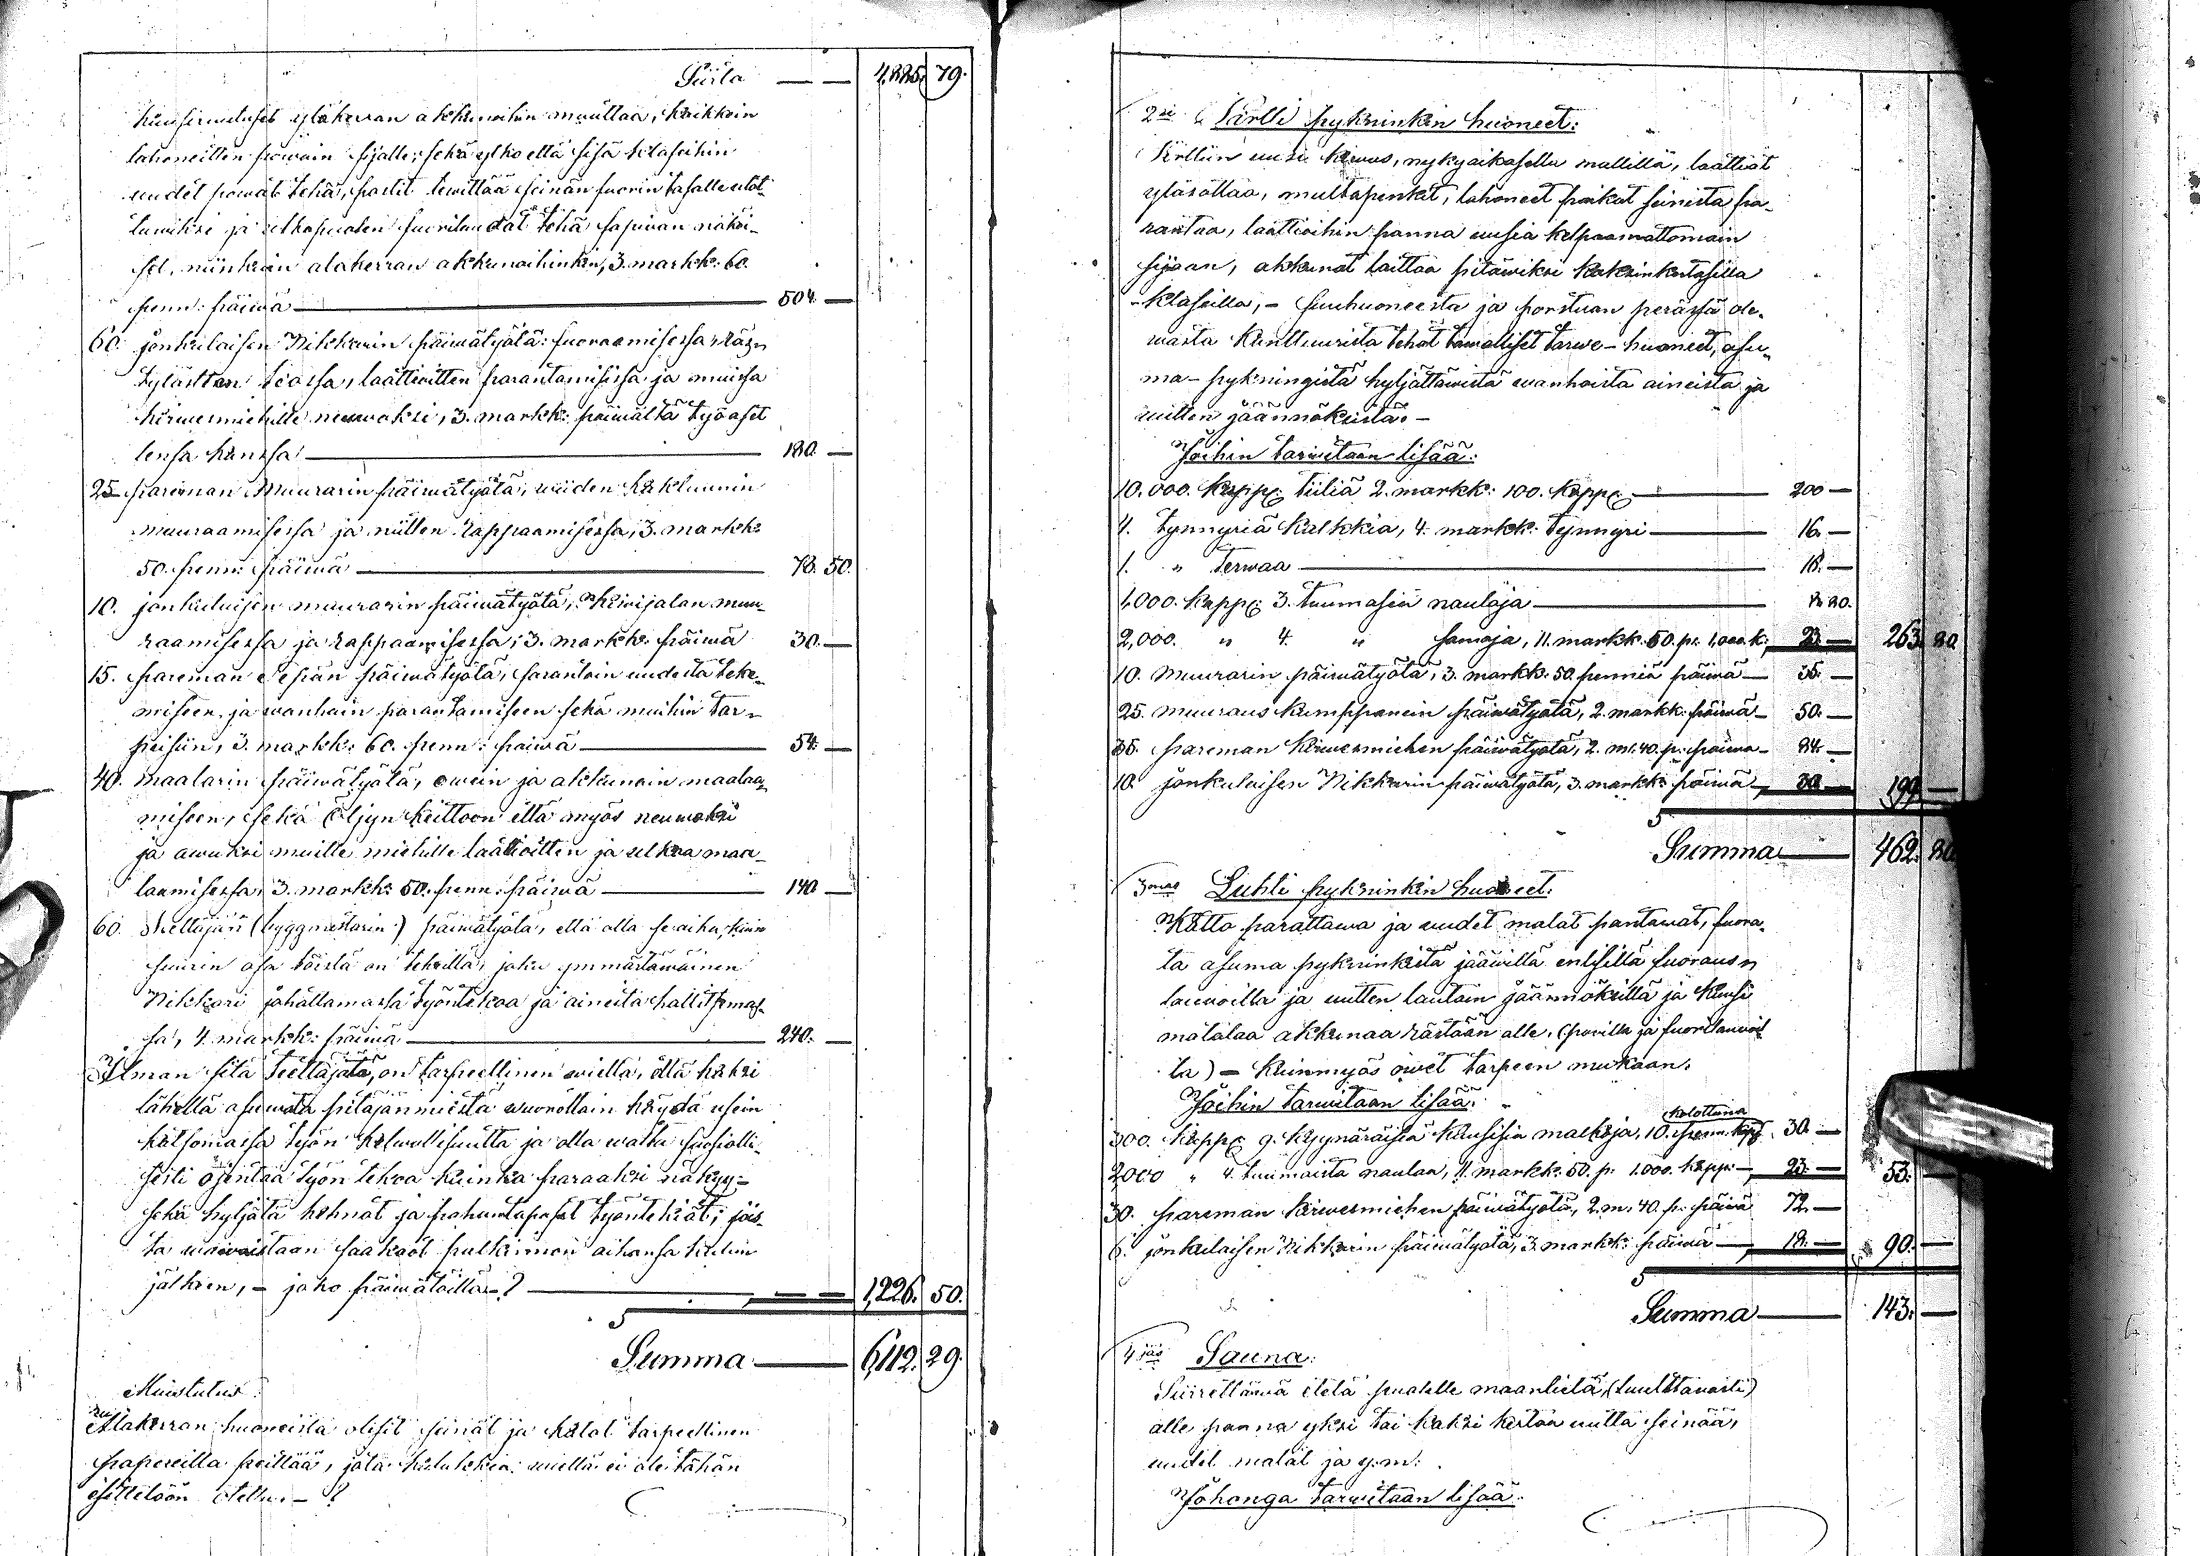 Siirto — — 4,885. 79.
yläkerran akkunoihin muuttaa, kaikkein
lahoneitten powain sijalle; sekä ylko että sisä klaseihin
uudet powat tehä, spaltit lewittää seinän fuorin tasalle ulot-
tuwiksi ja ulkopuolen fuorilaudat tehä sopiwan näköi-
set, niinkuin alakerran akkunoihinkin, 3. markk: 60.
penn: päiwä — 504. —
60. jonkulaisen Nikkarin päiwätyötä: fuoraamisessa, räs-
tylästten teossa, laattioitten parantamisessa ja muissa
kirwesmiehille neuwoksi, 3. markk: päiwältä työaset
tensa kanssa — 180. —
25. pareman Muurarin päiwätyötä, wiiden kakluunin
muuraamisessa ja niitten Rappaamisessa, 3. markk:
50. penn: päiwä — 78. 50.
10. jonkulaisen muurarin päiwätyötä, Kiwijalan muu-
raamisessa ja rappaamisessa, 3. markk: päiwä 30. —
15. pareman Sepän päiwätyötä, sarantoin uudesta teke-
miseen, ja wanhain parantamiseen sekä muihin tar-
peisiin, 3. markk: 60. penn: päiwä — 54. —
40. maalarin päiwätyötä, owein ja akkunain maalaa-
miseen, sekä Öljyn keittoon että myös neuwoksi
ja awuksi muille miehille laattioitten ja ulkoa maa-
laamisessa, 3. markk: 50. penn: päiwä — 140 —
60. Teettäjän (byggmestarin) päiwätyötä, että olla se aika, kuin
suurin osa töistä on tehtillä, joku ymmärtäwäinen
Nikkari johattamassa työntekoa ja aineita hallitsemas-
sa, 4. markk: päiwä — 240. —
Ilman sitä teettäjätä, on tarpeellinen wielä, että kaksi
lähellä asuwata pitäjänmiestä wuorottain käydä usein
katsomassa työn kelwollisuutta ja olla waltu
sesti osentaa työn tekoa kuinka paraaksi näkyy-
sekä hyljätä huonot ja pahantapaset työntekiät; jois-
ta saakoot palkinnon aikansa kulun
jälkeen, - joko päiwätöillä-? — 1,226. 50.
Summa — 6,112. 29.
Muistutus:
Alakerran huoneista olisit seinät ja katot tarpeellinen
papereilla peittää, jota wielä ei ole tähän
esittelöön otettu. - ?
2si Kölli pykninkin huoneet:
Kölliin uusi kiwus, nykyaikasella mallilla, laattiat
ylösottaa, multapenkat, lahoneet paikat seinistä pa-
rantaa, laattioihin panna uusia kelpaamattomain
sijaan, akkunat laittaa pitäwiksi kaksinkertasilla
klaseilla, - suuhuoneesta ja porstuan perässä ole-
wasta Kanttuurista tehöt tawalliset tarwe-huoneet, asu-
ma-pykningistä hyljättäwistä wanhoista aineista ja
uitten jäännöksistä. -
Joihin tarwitaan lisää:
10,000. Kappe: tiiliä 2. markk: 100. Kappe: — 200 —
4. tynnyriä Kalkkia, 4. markk: tynnyri — 16. —
1. " Terwaa — 18. —
1,000. Kappe: 3. tuumasia nauloja — 80.
2,000. " 4. " samoja, 11. markk: 50. p: 1,000 k: 23. — 263. 80
10. Muurarin päiwätyötä, 3. markk: 50. penniä päiwä — 35. —
25. muuraus kumppanein päiwätyötä, 2. markk: päiwä — 50. —
35. pareman kirwesmiehen päiwätyötä, 2. m: 40. p: päiwä — 84. —
10. jonkulaisen Nikkarin päiwätyötä, 3. markk: päiwä — 30. — 199. —
Summa — 462. 80
3mas Luhti pykninkin huoneet.
Katto parattawa ja uudet malat pantawat, fuora-
ta asuma pykninkistä jääwillä entisillä fuoraus-
lauwoilla ja uutten lautain jäännöksillä ja kuusi
matalaa akkunaa rästään alle, (powilla ja fuorilauwoil
la) - kuinmyös owet tarpeen mukaan.
Joihin tarwitaan lisää:
300. Kappe: 9. kyynäräisiä kuusisia malkoja, 10. penn: kappe: kolottuna 30. —
2000 " 4. tuumaista naulaa, 11. markk: 50. p: 1,000. kapp: — 23. — 53. —
30. pareman kirwesmiehen päiwätyötä, 2. m: 40. p: päiwä 72. —
6. jonkulaisen Nikkarin päiwätyötä, 3. markk: päiwä — 18. — 90. —
Summa — 143. —
4jäs Sauna:
Siirettäwä etelä puolelle maantietä, (luultawasti)
alle panna yksi tai kaksi kertaa uutta seinää,
uudet malat ja y: m:
Johonga tarwitaan lisää: